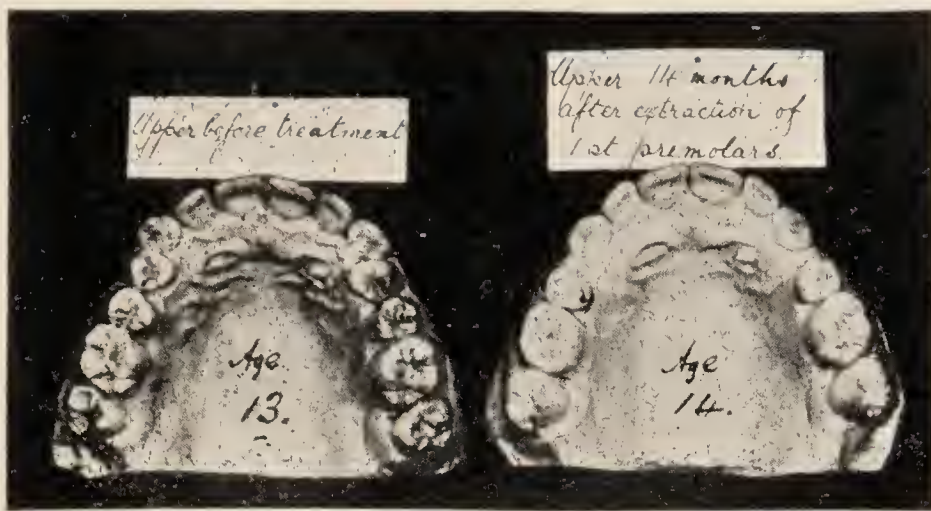 Upper before treatment
Upper 14 months
after extraction of
1st premolars.
Age
13.
Age
14.